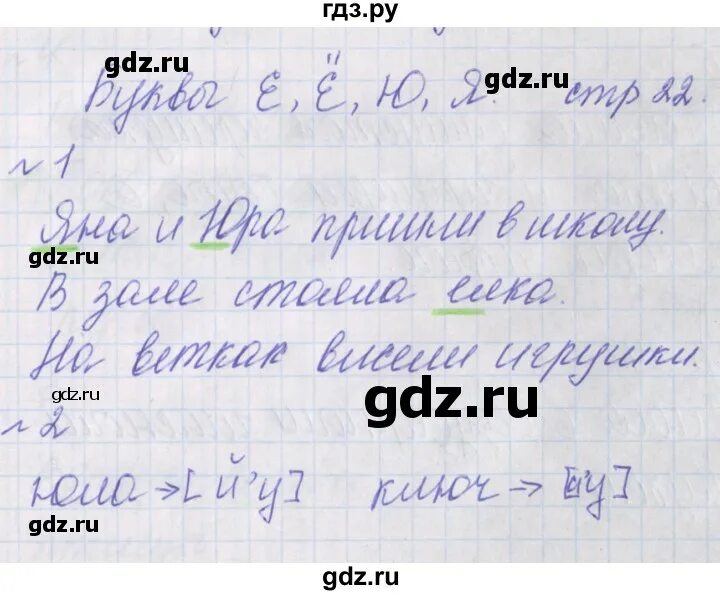 гдз.ру
gdz.ru
Буквы Е, Ё, Ю, Я. стр 22.
gdz.ru
№1
Яна и Юра пришли в школу.
gdz.ru gdz.ru
В зале стояла елка.
На ветках висели игрушки.
gdz.ru gdz.ru
№2
юла → [й'у] ключ → [л'у]
gdz.ru gdz.ru
gdz.ru